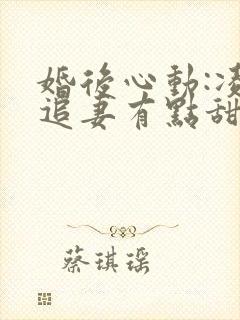 婚後心動:凌
追妻有點甜
蔡琪瑶